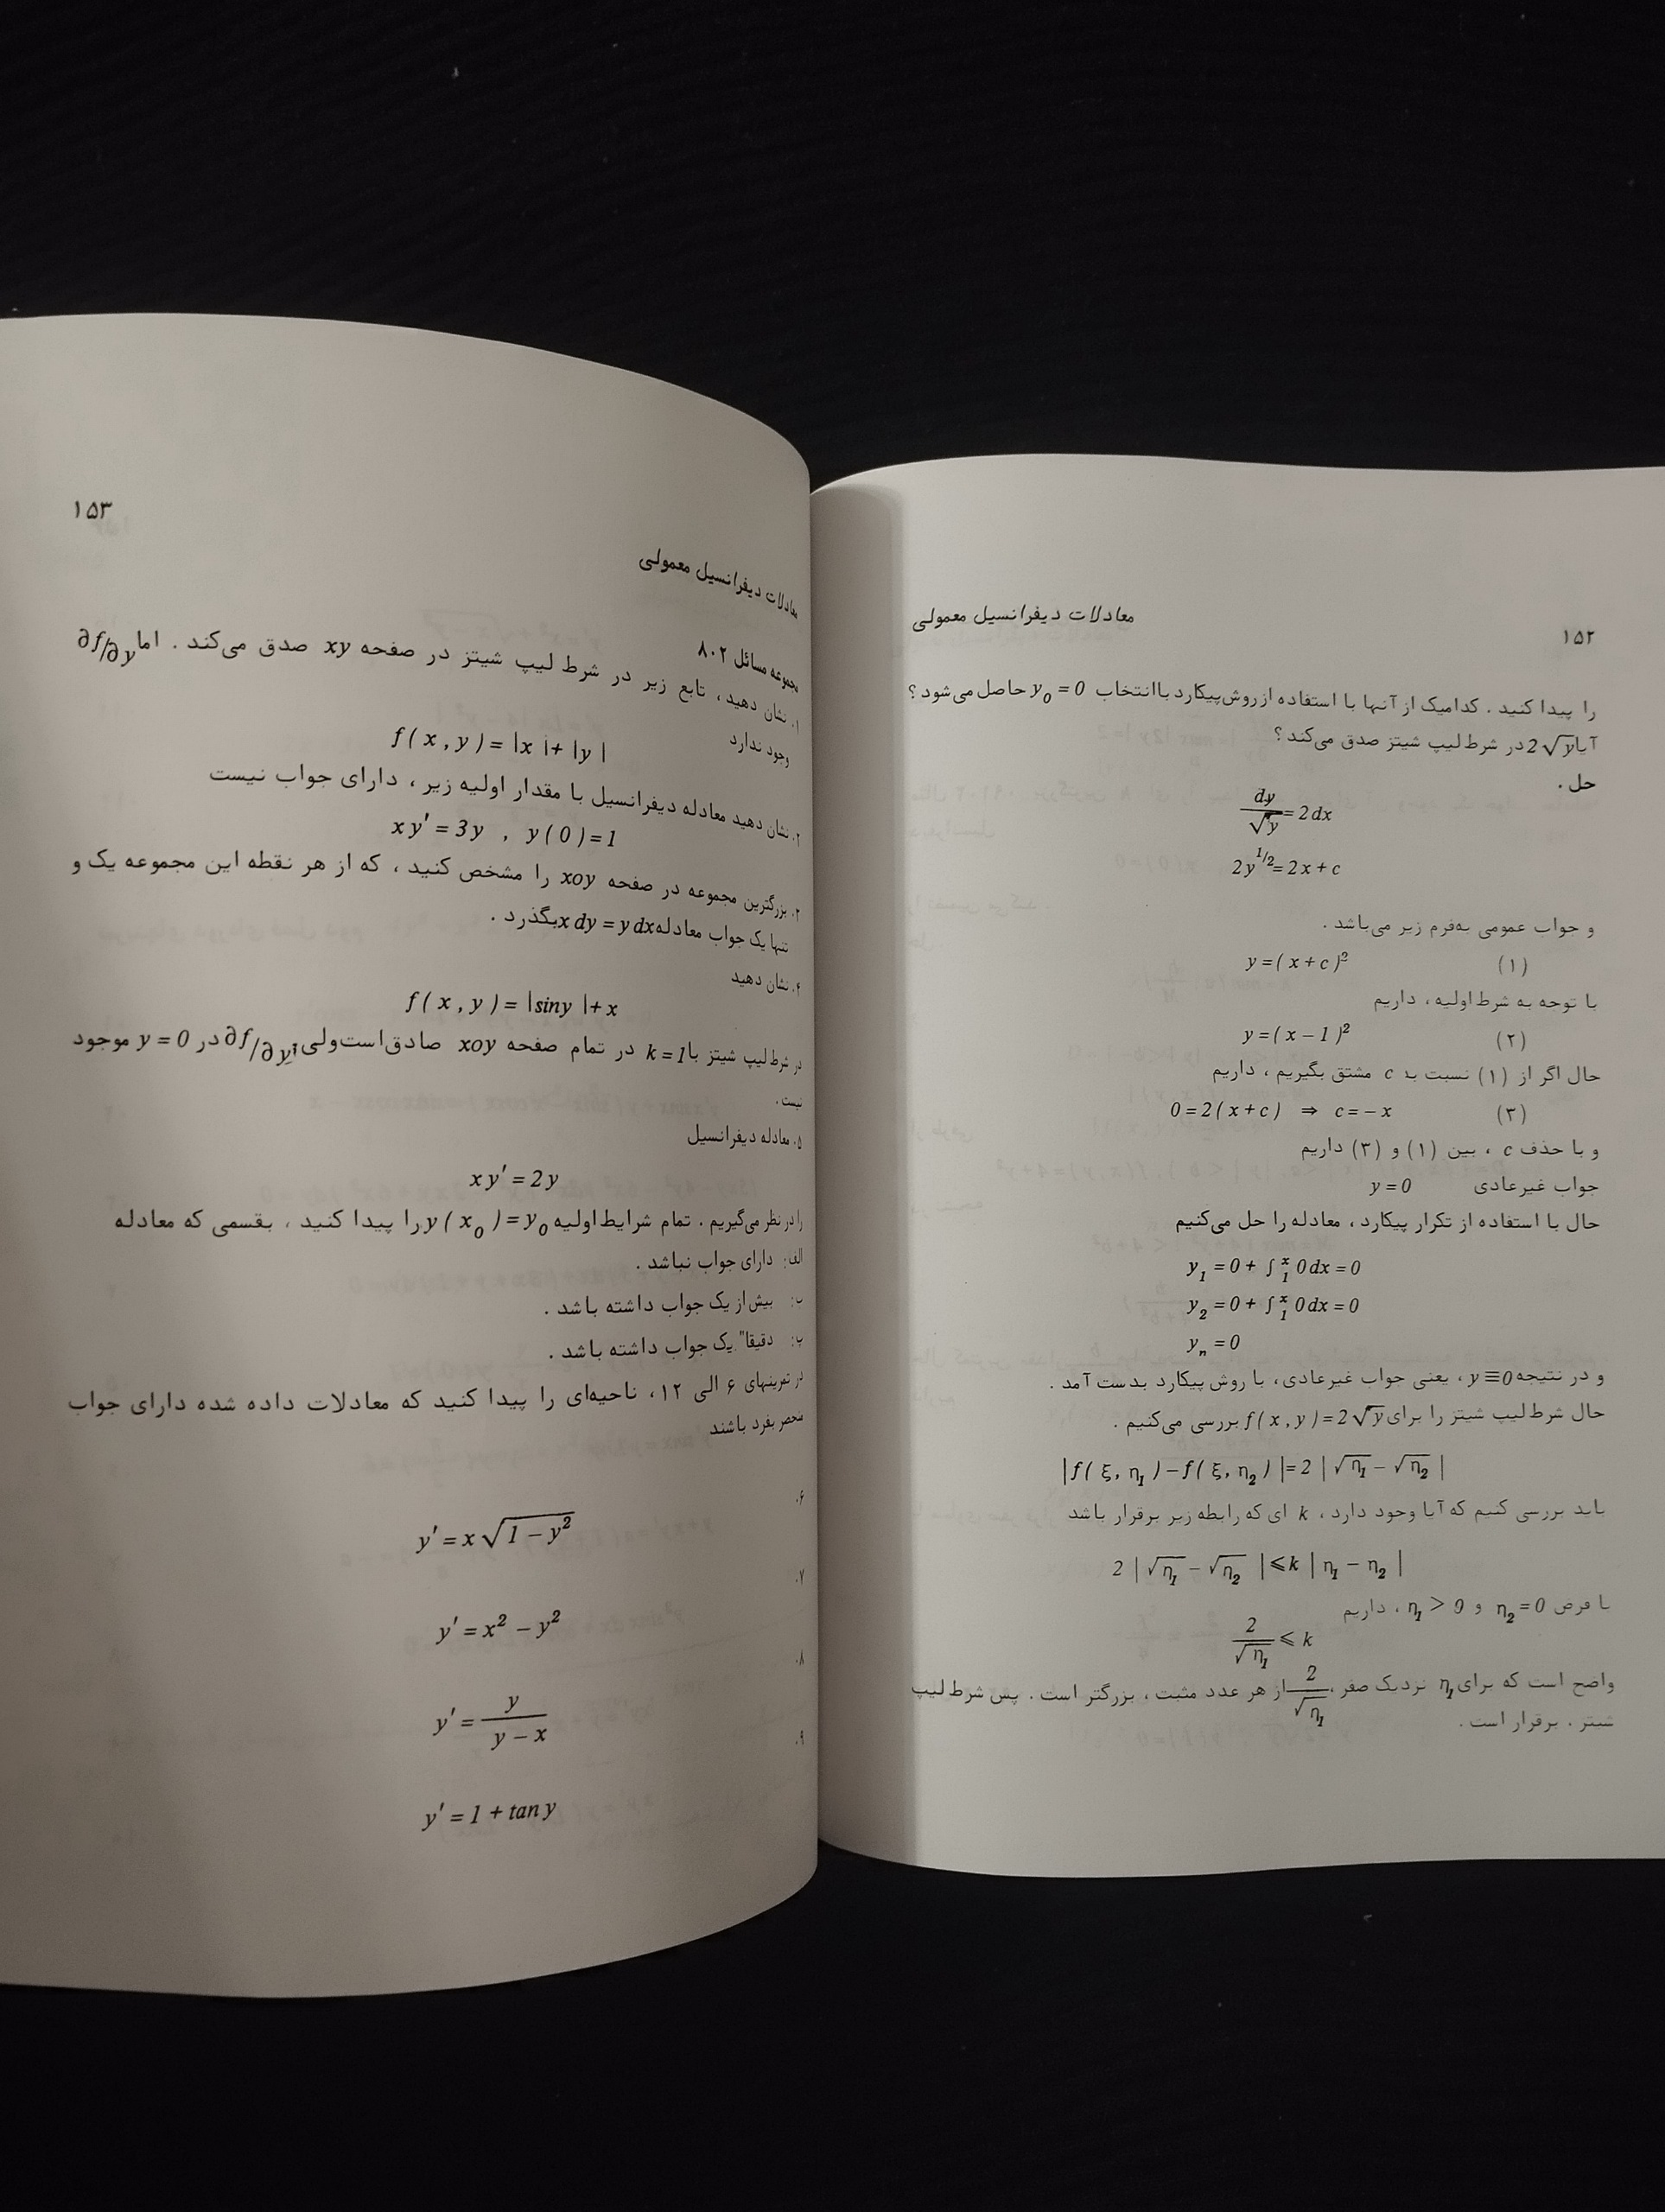 ۱۵۲
معادلات دیفرانسیل معمولی
را پیدا کنید . کدامیک از آنها با استفاده از روش پیکارد با انتخاب y₀ = 0 حاصل می‌شود ؟
آیا 2√y در شرط لیپ شیتز صدق می‌کند ؟
حل .
dy/√y = 2 dx
2y^1/2 = 2x + c
و جواب عمومی به‌فرم زیر می‌باشد .
(۱) y = ( x + c )²
با توجه به شرط اولیه ، داریم
(۲) y = ( x − 1 )²
حال اگر از (۱) نسبت به c مشتق بگیریم ، داریم
(۳) 0 = 2 ( x + c ) ⇒ c = − x
و با حذف c ، بین (۱) و (۳) داریم
جواب غیرعادی y = 0
حال با استفاده از تکرار پیکارد ، معادله را حل می‌کنیم
y₁ = 0 + ∫₁ˣ 0 dx = 0
y₂ = 0 + ∫₁ˣ 0 dx = 0
yₙ = 0
و در نتیجه y ≡ 0 ، یعنی جواب غیرعادی ، با روش پیکارد بدست آمد .
حال شرط لیپ شیتز را برای f ( x , y ) = 2√y بررسی می‌کنیم .
| f ( ξ, η₁ ) − f ( ξ, η₂ ) | = 2 | √η₁ − √η₂ |
باید بررسی کنیم که آیا وجود دارد ، k ای که رابطه زیر برقرار باشد
2 | √η₁ − √η₂ | ⩽ k | η₁ − η₂ |
با فرض η₂ = 0 و η₁ > 0 ، داریم
2/√η₁ ⩽ k
واضح است که برای η₁ نزدیک صفر ، 2/√η₁ از هر عدد مثبت ، بزرگتر است . پس شرط لیپ
شیتز ، برقرار است .
۱۵۳
معادلات دیفرانسیل معمولی
مجموعه مسائل ۸۰۲
۱. نشان دهید ، تابع زیر در شرط لیپ شیتز در صفحه xy صدق می‌کند . اما ∂f/∂y
وجود ندارد
f ( x , y ) = |x |+ |y |
۲. نشان دهید معادله دیفرانسیل با مقدار اولیه زیر ، دارای جواب نیست
x y′ = 3y , y ( 0 ) = 1
۳. بزرگترین مجموعه در صفحه xoy را مشخص کنید ، که از هر نقطه این مجموعه یک و
تنها یک جواب معادله x dy = y dx بگذرد .
۴. نشان دهید
f ( x , y ) = |siny |+ x
در شرط لیپ شیتز با k = 1 در تمام صفحه xoy صادق است ولی ∂f/∂y در y = 0 موجود
نیست .
۵. معادله دیفرانسیل
x y′ = 2 y
را در نظر می‌گیریم . تمام شرایط اولیه y ( x₀ ) = y₀ را پیدا کنید ، بقسمی که معادله
الف: دارای جواب نباشد .
ب: بیش از یک جواب داشته باشد .
پ: دقیقا" یک جواب داشته باشد .
در تمرینهای ۶ الی ۱۲ ، ناحیه‌ای را پیدا کنید که معادلات داده شده دارای جواب
منحصر بفرد باشند
۶.
y′ = x √1 − y²
۷.
y′ = x² − y²
۸.
y′ = y/y − x
۹.
y′ = 1 + tan y